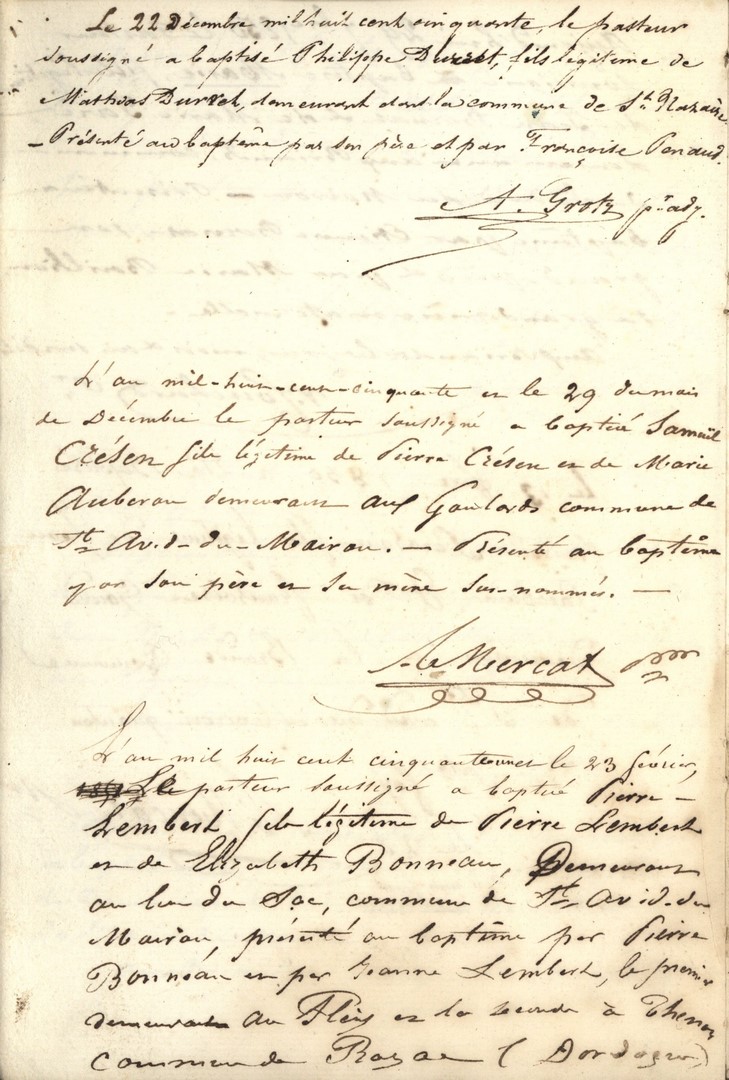 Le 22 Décembre mil huit cent cinquante, le pasteur
soussigné a baptisé Philippe Durret, fils légitime de
Mathias Durret, demeurant dans la commune de St. Nazaire
– Présenté au baptême par son père et par Françoise Penaud.
A. Grotz pr. adj.
L'an mil-huit-cent-cinquante et le 29 du mois
de Décembre le pasteur soussigné a baptisé Samuël
Crésen fils légitime de Pierre Crésen et de Marie
Auberau demeurant aux Goulards commune de
St Avid-du-Moirau. — Présenté au baptême
par son père et sa mère sus-nommés. —
Mercat
L'an mil huit cent cinquante et le 23 février,
Le pasteur soussigné a baptisé Pierre –
Lembert fils légitime de Pierre Lembert
et de Elizabeth Bonneau, Demeurant
au lieu du Soc, commune de St Avid-du
Moirau, présenté au baptême par Pierre
Bonneau et par Jeanne Lembert, le premier
demeurant au Fleix et la seconde à
commune de Razac (Dordogne)